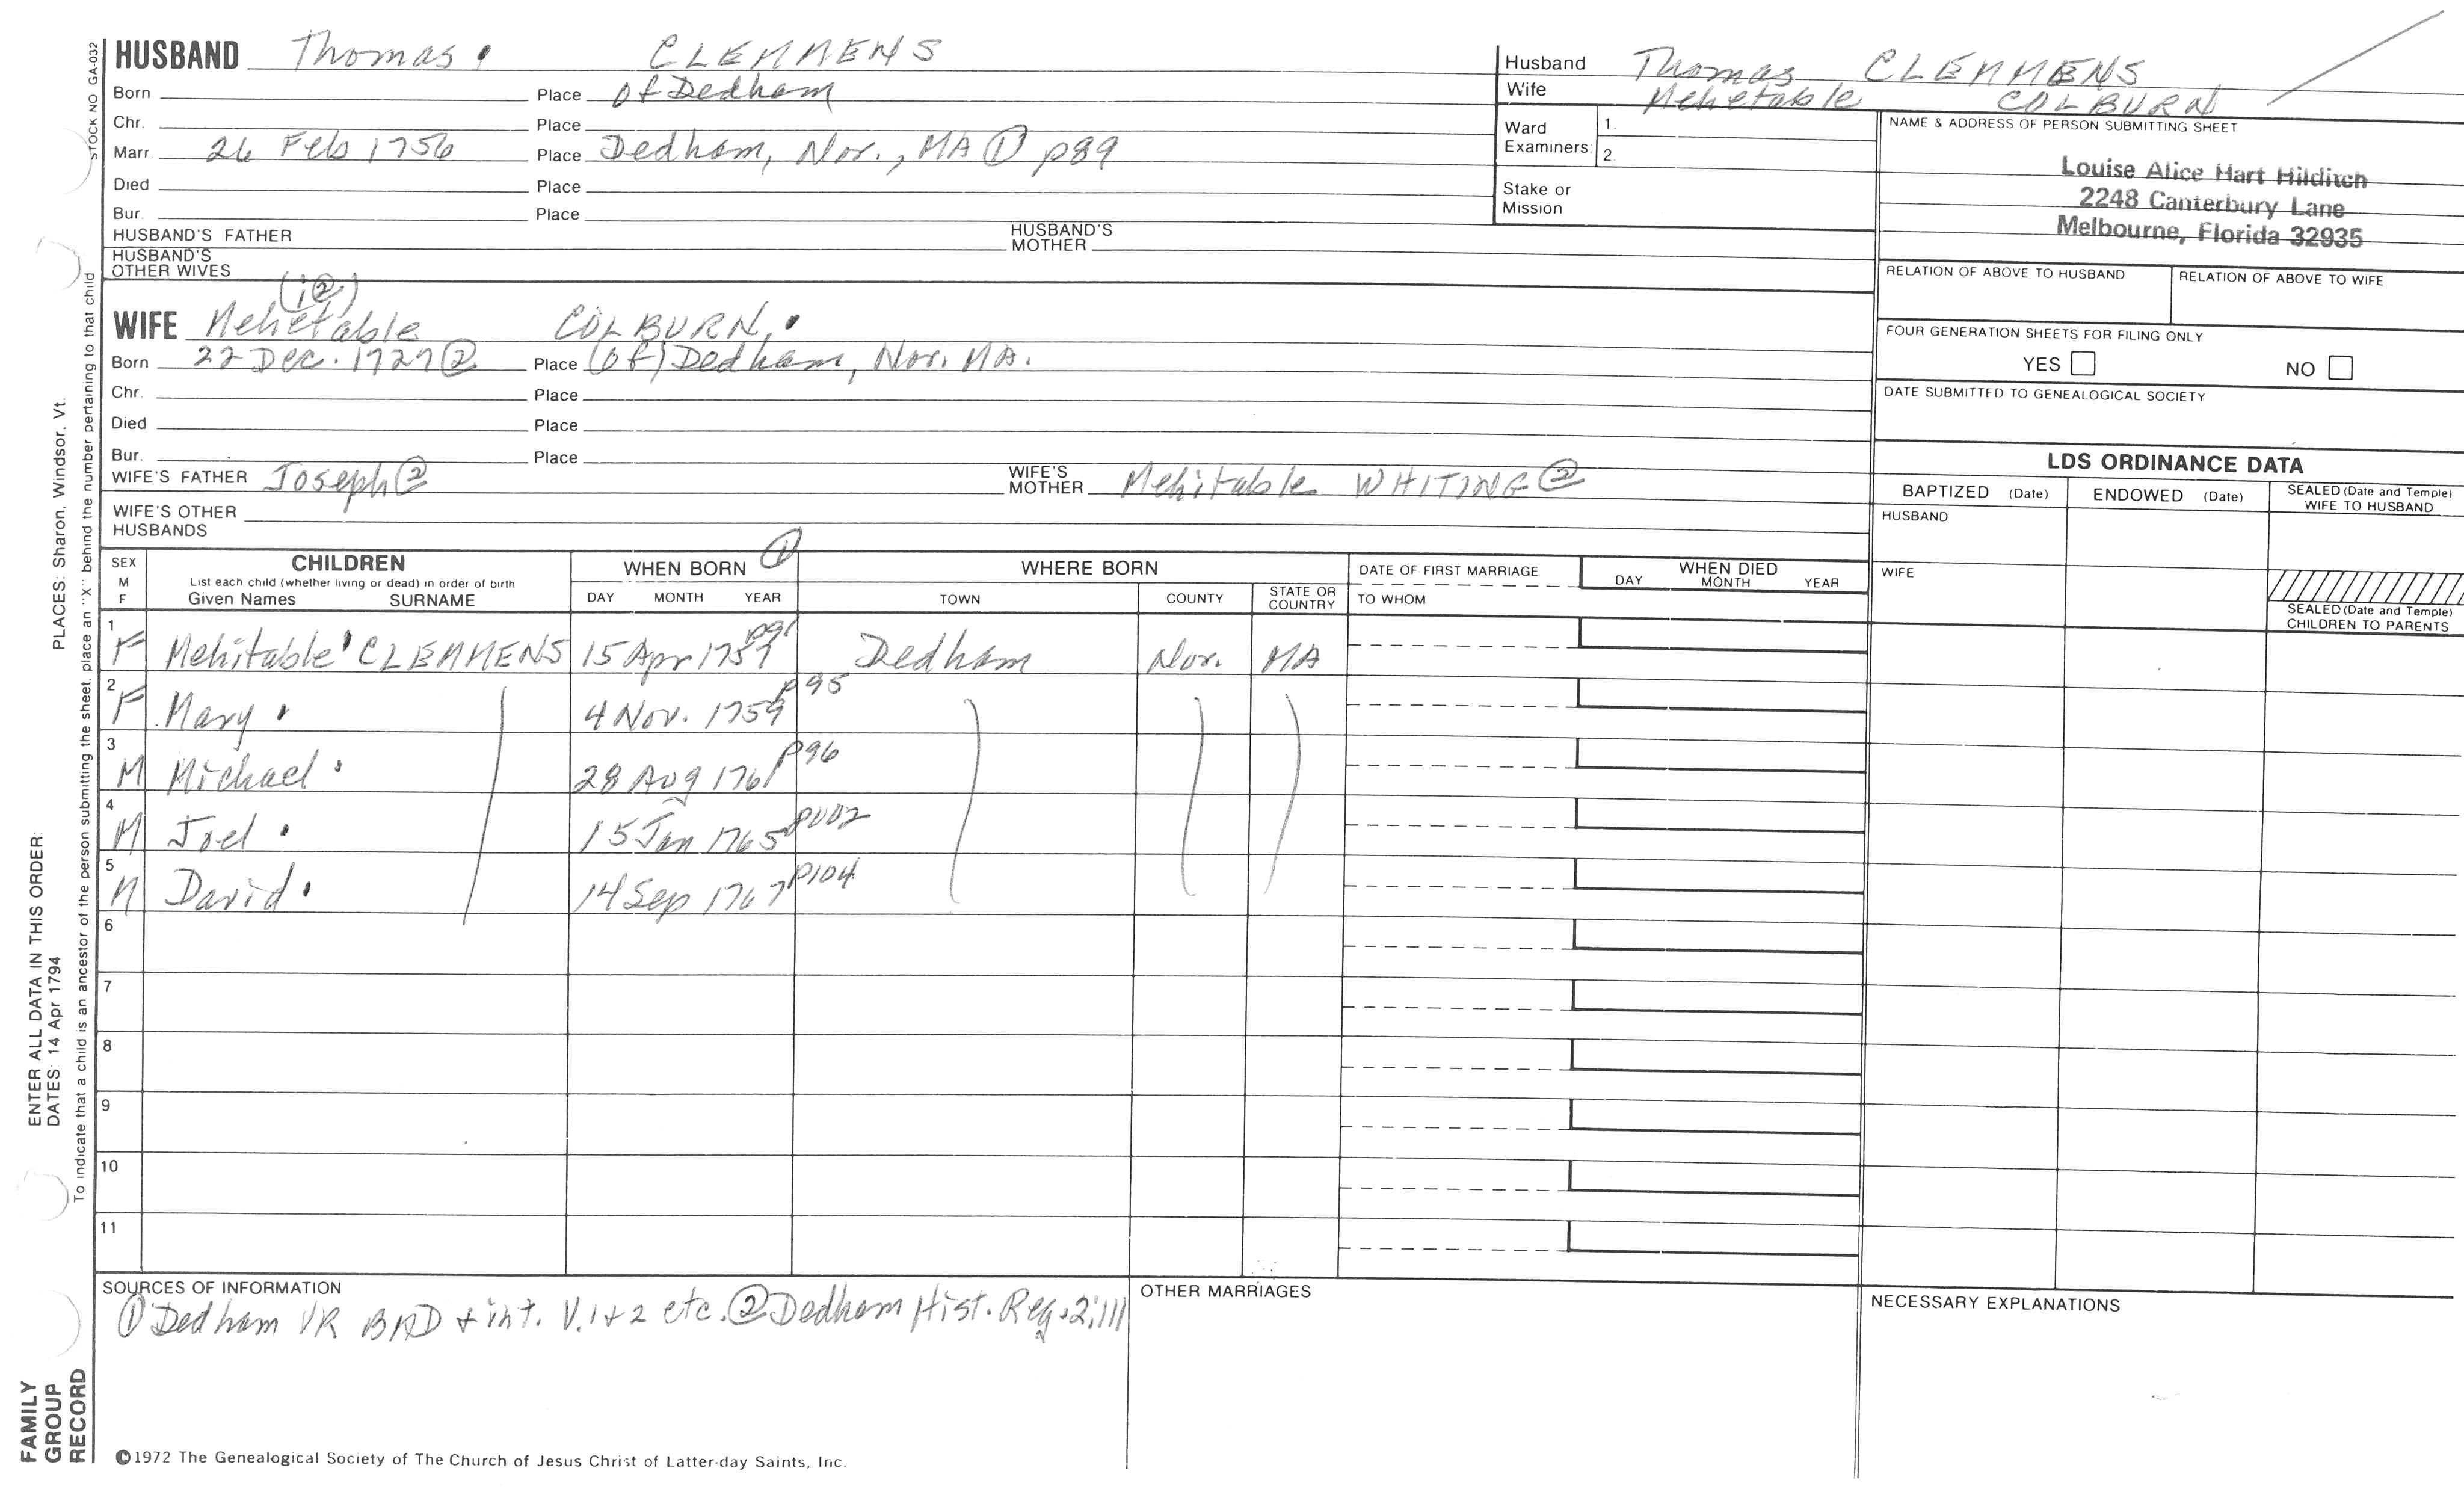 STOCK NO GA-032
HUSBAND Thomas CLEMMENS
Born Place of Dedham
Chr. Place
Marr. 26 Feb 1756 Place Dedham, Nor., MA ① p89
Died Place
Bur. Place
HUSBAND'S FATHER HUSBAND'S MOTHER
HUSBAND'S OTHER WIVES
(i②)
WIFE Mehetable COLBURN
Born 22 Dec. 1727 ② Place (of) Dedham, Nor. MA.
Chr. Place
Died Place
Bur. Place
WIFE'S FATHER Joseph ② WIFE'S MOTHER Mehitable WHITING ②
WIFE'S OTHER HUSBANDS
Husband Thomas CLEMMENS
Wife Mehetable COLBURN
Ward Examiners: 1.
2.
Stake or Mission
NAME & ADDRESS OF PERSON SUBMITTING SHEET
Louise Alice Hart Hilditch
2248 Canterbury Lane
Melbourne, Florida 32935
RELATION OF ABOVE TO HUSBAND RELATION OF ABOVE TO WIFE
FOUR GENERATION SHEETS FOR FILING ONLY
YES NO
DATE SUBMITTED TO GENEALOGICAL SOCIETY
LDS ORDINANCE DATA
BAPTIZED (Date) ENDOWED (Date) SEALED (Date and Temple) WIFE TO HUSBAND
HUSBAND
WIFE
SEALED (Date and Temple) CHILDREN TO PARENTS
SEX M F CHILDREN WHEN BORN ① WHERE BORN DATE OF FIRST MARRIAGE WHEN DIED
List each child (whether living or dead) in order of birth
Given Names SURNAME DAY MONTH YEAR TOWN COUNTY STATE OR COUNTRY TO WHOM DAY MONTH YEAR
1 F Mehitable CLEMMENS 15 Apr Dedham Nor. MA
2 F Mary 4 Nov. 1759 p95
3 M Michael 28 Aug 1761 p96
4 M Joel 15 Jan 1765
5 M David 14 Sep 1767 p104
6
7
8
9
10
11
SOURCES OF INFORMATION
① Dedham VR BMD + int. V. 1+2 etc. ② Dedham Hist. Reg. 2:111
OTHER MARRIAGES
NECESSARY EXPLANATIONS
©1972 The Genealogical Society of The Church of Jesus Christ of Latter-day Saints, Inc.
FAMILY GROUP RECORD
ENTER ALL DATA IN THIS ORDER:
DATES: 14 Apr 1794
PLACES: Sharon, Windsor, Vt.
To indicate that a child is an ancestor of the person submitting the sheet, place an "X" behind the number pertaining to that child